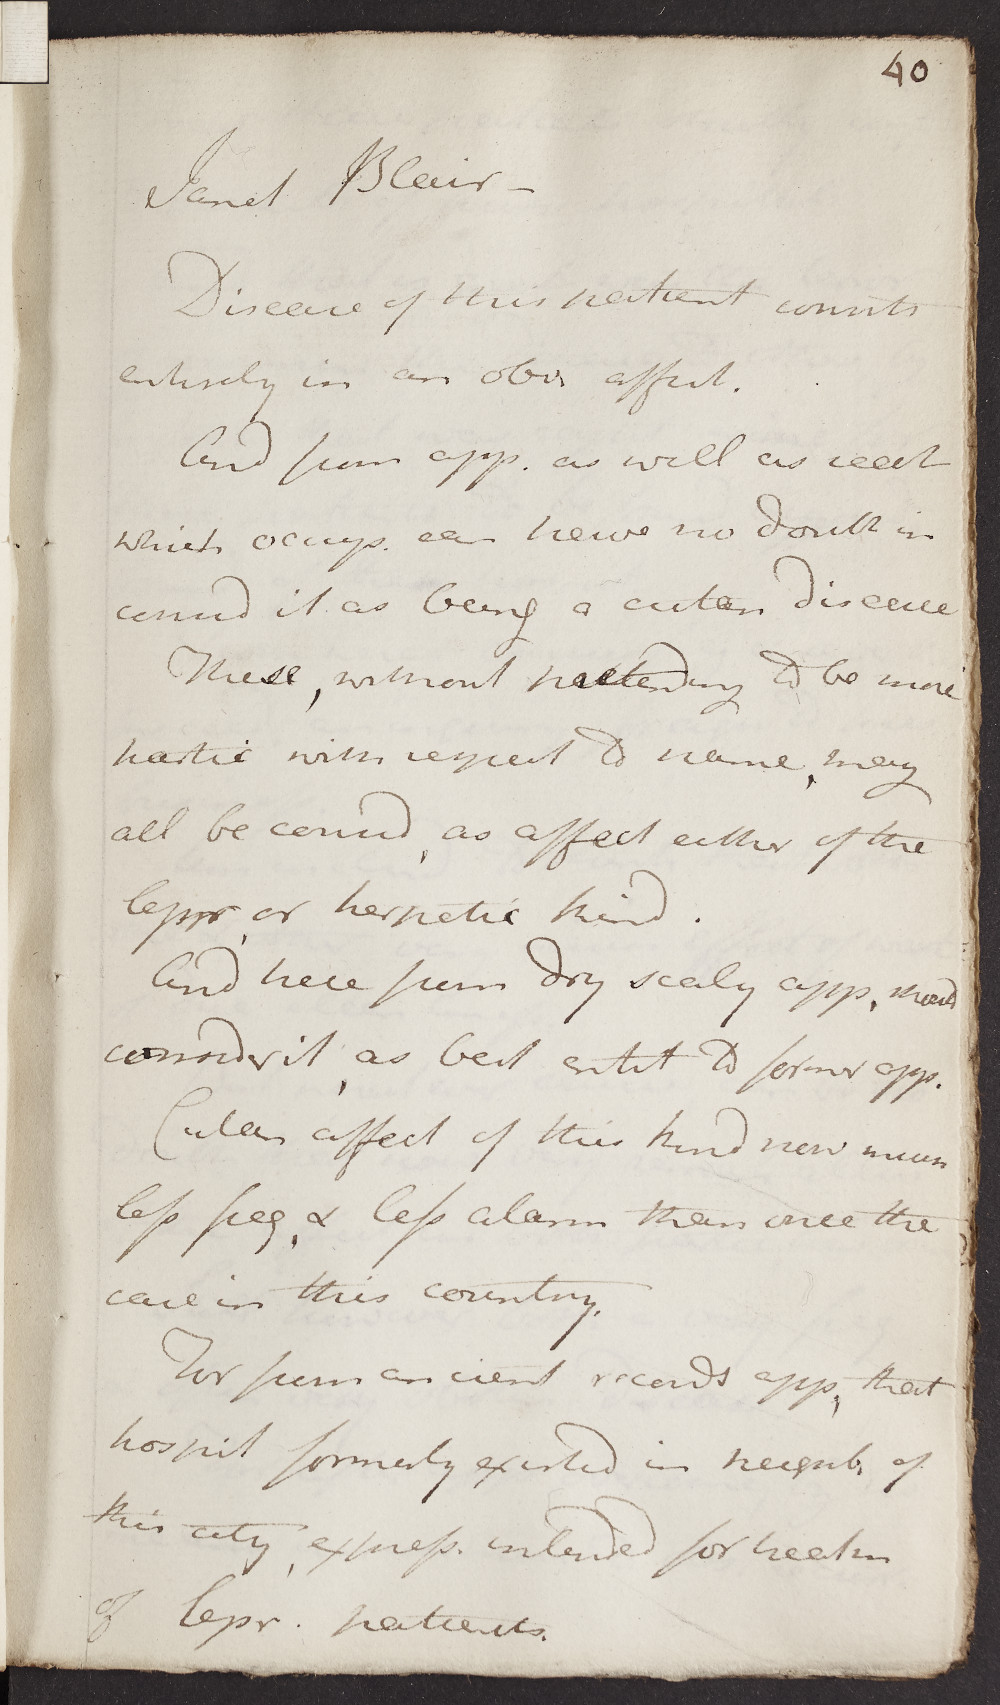 40
Janet Blair -
Disease of this patient consists
entirely in an obvs affect.
And from app. as well as seat
which occup. can have no doubt in
consid it as being a cutan disease
These, without pretending to be more
partic with respect to name, may
all be consid, as affect either of the
lepr, or herpetic kind.
And here from dry scaly app, should
consider it, as best entit to former app.
Cutan affect of this kind now much
less freq, & less alarm than once the
case in this country.
For from ancient records app, that
hospit formerly existed in neighb, of
this city, express. intended for
of lepr. patients.